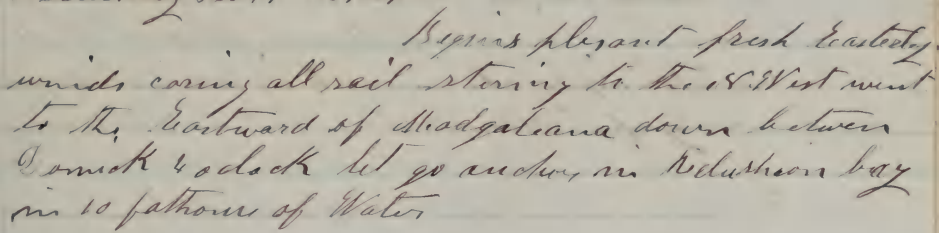 Begins plesant fresh Easterly
winds caring all sail stering to the N. West went
to the Eastward of Madgaleana down between
Domick 4 oclock let go anchor in Relushion bay
in 10 fathoms of Water